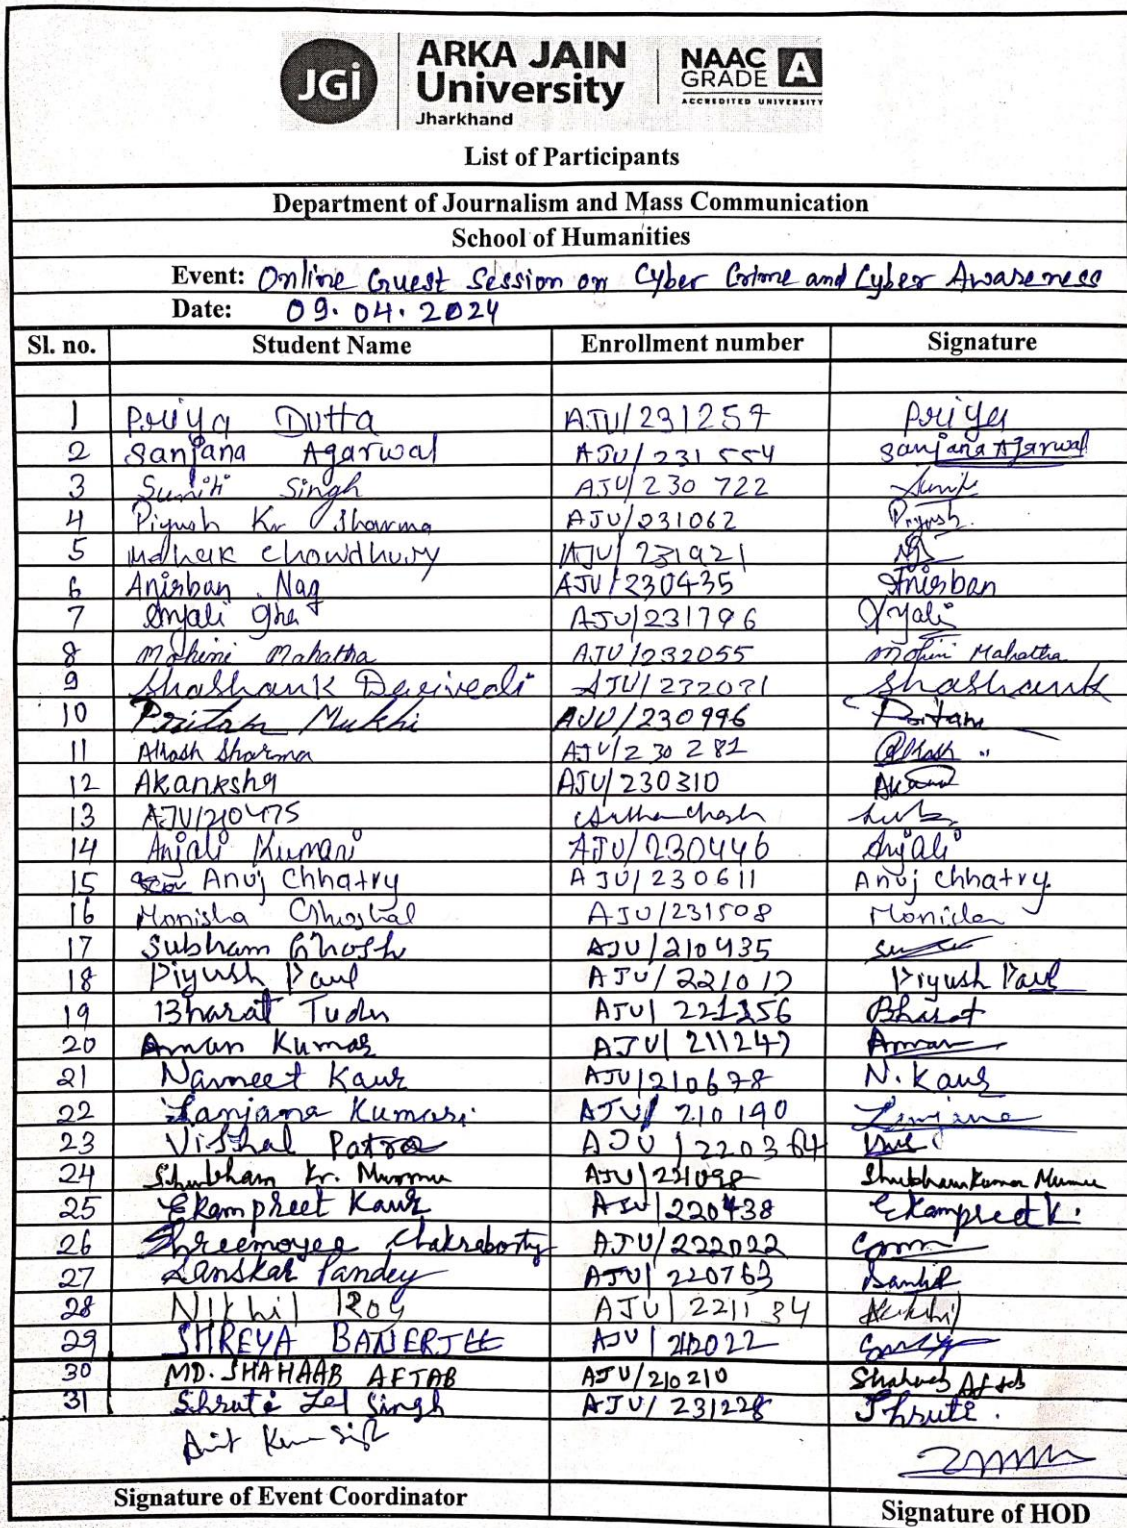 JGi
ARKA JAIN
University
Jharkhand
NAAC
GRADE A
ACCREDITED UNIVERSITY
List of Participants
Department of Journalism and Mass Communication
School of Humanities
Event: Online Guest Session on Cyber Crime and Cyber Awareness
Date: 09.04.2024
Sl. no. Student Name Enrollment number Signature
1 Priya Dutta AJU/231257 Priya
2 Sanjana Agarwal AJU/231554 Sanjana Agarwal
3 Suniti Singh AJU/230722
4 Piyush Kr Sharma AJU/231062 Piyush
5 Mahek Chowdhury AJU/231921
6 Anirban Nag AJU/230435 Anirban
7 Anjali AJU/231796 Anjali
8 Mohini Mahatha AJU/232055 Mohini Mahatha
9 Shashank AJU/232031 Shashank
10 Pritam Mukhi AJU/230996 Pritam
11 Akash Sharma AJU/230281 Akash
12 Akanksha AJU/230310
13 AJU/210475
14 Anjali Kumari AJU/230446 Anjali
15 Anuj Chhatry AJU/230611 Anuj Chhatry.
16 Monisha Ghoshal AJU/231508 Monisha
17 Subham Ghosh AJU/210435
18 Piyush Paul AJU/221017 Piyush Paul
19 Bharat Tudu AJU/221356 Bharat
20 Aman Kumar AJU/211247 Aman
21 Navneet Kaur AJU/210678 N. Kaur
22 Sanjana Kumari AJU/210190 Sanjana
23 Vishal Patra AJU/220364
24 Shubham Kr. Murmu Shubham Kumar Murmu
25 Ekampreet Kaur AJU/220438 Ekampreet K.
26 Shreemoyee Chakraborty AJU/222022
27 Sanskar Pandey AJU/220763
28 Nikhil Roy AJU/221134 Nikhil
29 SHREYA BANERJEE
30 MD. SHAHAAB AFTAB AJU/210210 Shahaab Aftab
31 Shruti Singh AJU/231228 Shruti.
Signature of Event Coordinator Signature of HOD